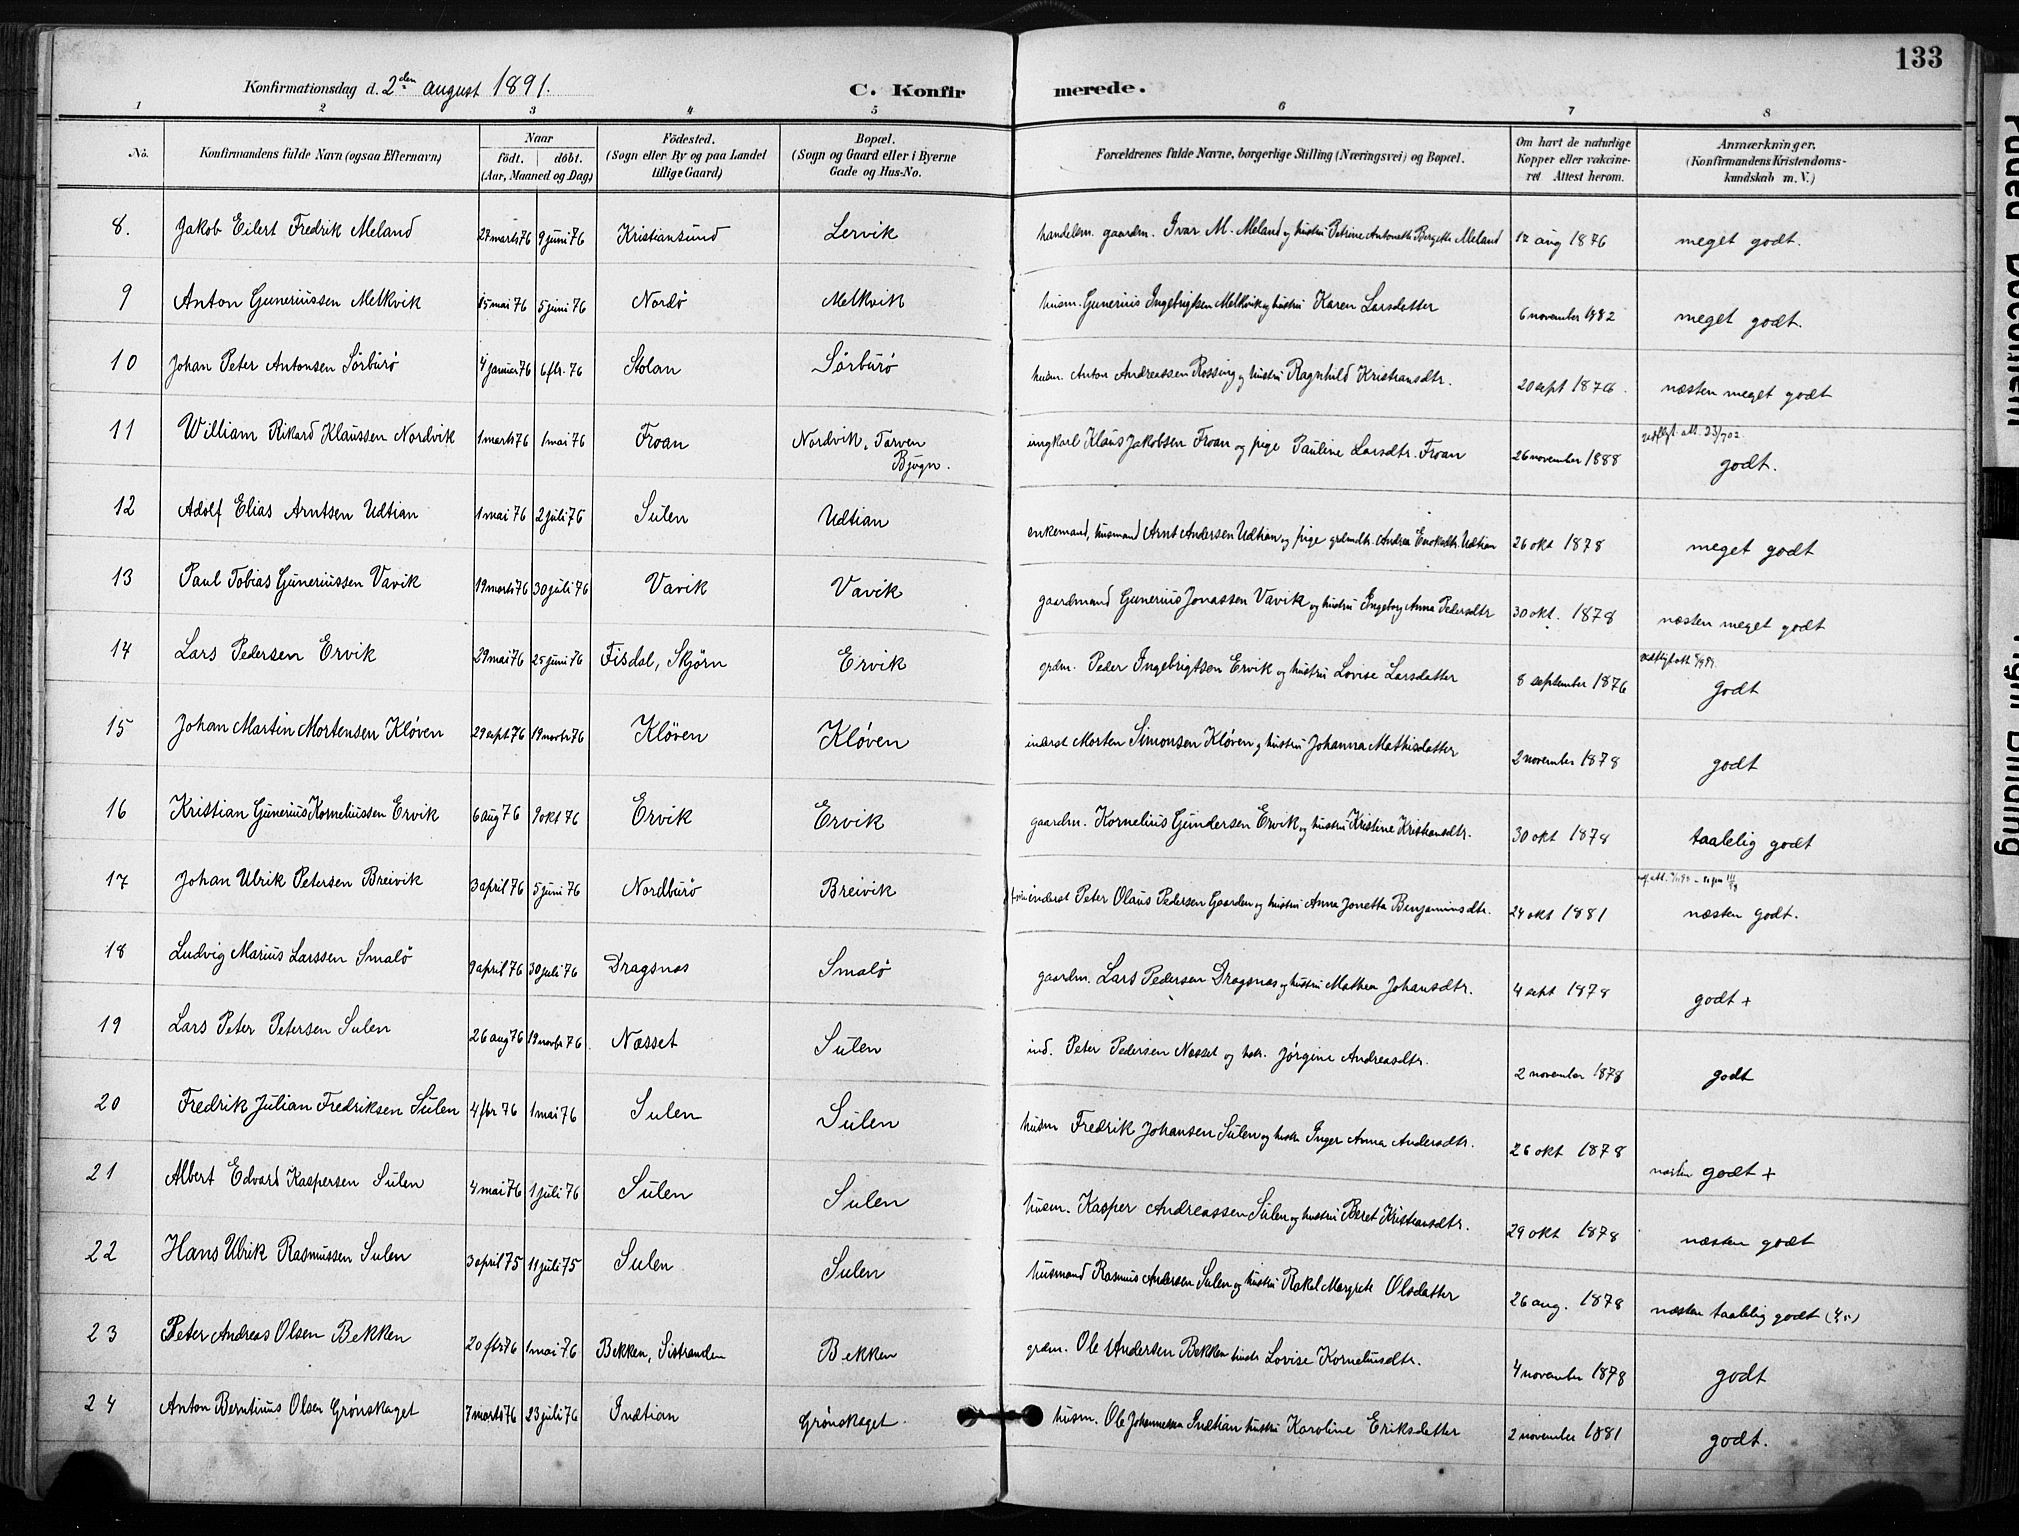 133
Konfirmationsdag d. 2den august 1891.
C. Konfirmerede.
1 2 3 4 5 6 7 8
No. Konfirmandens fulde Navn (ogsaa Efternavn) Naar födt. döbt. (Aar, Maaned og Dag) Födested. (Sogn eller By og paa Landet tillige Gaard) Bopæl. (Sogn og Gaard eller i Byerne Gade og Hus-No. Forældrenes fulde Navne, borgerlige Stilling (Næringsvei) og Bopæl. Om havt de naturlige Kopper eller vakcineret Attest herom. Anmærkninger. (Konfirmandens Kristendomskundskab m. V.)
8. Jakob Eilert Fredrik Meland 27 marts 76 9 juni 76 Kristiansund Lervik handelsm. gaardm. Ivar M. Meland og hustru Petrine Antonette Bergette Meland 17 aug 1876 meget godt.
9 Anton Guneriussen Melkvik 15 mai 76 5 juni 76 Nordö Melkvik husm. Gunerius Ingebrigtsen Melkvik og hustru Karen Larsdatter 6 november 1882 meget godt.
10 Johan Peter Antonsen Sörburö 4 januar 76 6 fbr. 76 Stolan Sörburö husm. Anton Andreassen Rossing og hustru Ragnhild Kristiansdtr. 20 sept 1876. næsten meget godt
11 William Rikard Klaussen Nordvik 1 marts 76 1 mai 76 Froan Nordvik, Tarven
Bjugn. ungkarl Klaus Jakobsen Froan og pige Pauline Larsdtr. Froan 26 november 1888 godt.
12 Adolf Elias Arntsen Udtian 1 mai 76 2 juli 76 Sulen Udtian enkemand, husmand Arnt Andersen Udtian og pige grdmdtr. Andrea Enoksdtr. Udtian 26 okt 1878 meget godt
13 Paul Tobias Guneriussen Vavik 19 marts 76 30 juli 76 Vavik Vavik gaardmand Gunerius Jonassen Vavik og hustru Ingeborg Anna Pedersdtr 30 okt. 1878 næsten meget godt
14 Lars Pedersen Ervik 29 mai 76 25 juni 76 Fisdal, Skjörn Ervik grdm. Peder Ingebrigtsen Ervik og hustru Lovise Larsdatter 8 september 1876 godt
15 Johan Martin Mortensen Klöven 29 sept 76 19 novbr 76 Klöven Klöven inderst Morten Simonsen Klöven og hustru Johanna Mathisdatter 2 november 1878 godt
16 Kristian Gunerius Korneliussen Ervik 6 aug 76 9 okt 76 Ervik Ervik gaardm. Kornelius Gundersen Ervik og hustru Kristine Kristiansdtr. 30 okt 1878 taalelig godt
17 Johan Ulrik Petersen Breivik 3 april 76 5 juni 76 Nordburö Breivik inderst Peter Olaus Pedersen Gaarden og hustru Anna Jonetta Benjaminsdtr. 24 okt 1881 næsten godt.
18 Ludvig Marius Larssen Smalö 9 april 76 30 juli 76 Dragsnæs Smalö gaardm. Lars Pedersen Dragsnæs og hustru Mathea Johansdtr. 4 sept 1878 godt +
19 Lars Peter Petersen Sulen 26 aug 76 19 novbr 76. Næsset Sulen ind. Peter Pedersen Næsset og hstr. Jörgine Andreasdtr. 2 november 1878 godt
20 Fredrik Julian Fredriksen Sulen 4 fbr 76 1 mai 76 Sulen Sulen husm Fredrik Johansen Sulen og hustr Inger Anna Andersdtr. 26 okt 1878 næsten godt +
21 Albert Edvard Kaspersen Sulen 4 mai 76 1 juli 76 Sulen Sulen husm. Kasper Andreassen Sulen og hustru Beret Kristiansdtr. 29 okt 1878 næsten godt
22 Hans Ulrik Rasmussen Sulen 3 april 75 11 juli 75 Sulen Sulen husmand Rasmus Andersen Sulen og hustru Rakel Margrete Olsdatter 26 aug. 1878 næsten taalelig godt
23 Peter Andreas Olsen Bekken 20 fbr 76 1 mai 76 Bekken, Sistranden Bekken grdm. Ole Andersen Bekken hustr Lovise Korneliusdtr. 4 november 1878 godt
24 Anton Berntinus Olsen Grönskaget 7 marts 76 23 juli 76 Indtian Grönskaget. husm. Ole Johannessen Indtian hustru Karoline Eriksdatter 2 november 1881 godt.